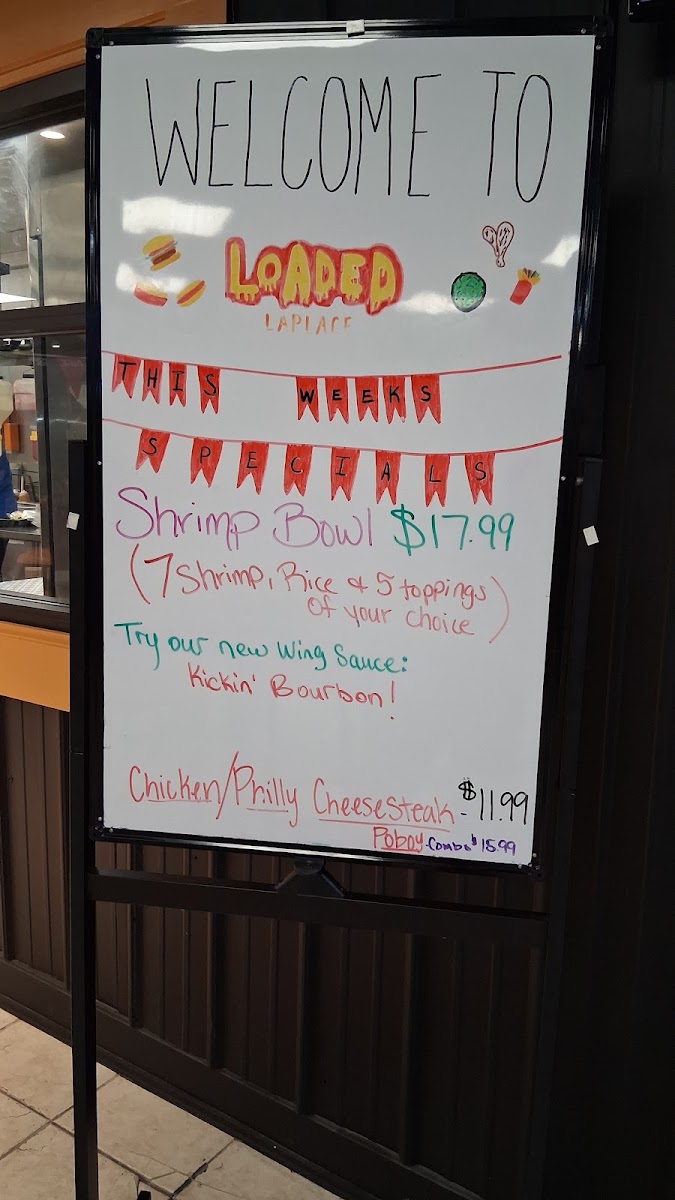 WELCOME TO
LOADED
LAPLACE
THIS WEEKS
SPECIALS
Shrimp Bowl $17.99
(7 Shrimp, Rice & 5 toppings
of your choice)
Try our new Wing Sauce:
Kickin' Bourbon!
Chicken/Philly CheeseSteak - $11.99
Poboy Combo $15.99